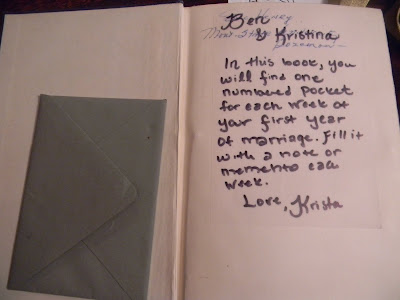 Ben
& Kristina
In this book, you
will find one
numbered pocket
for each week of
your first year
of marriage. Fill it
with a note or
memento each
week.
Love, Krista